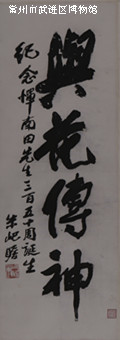 常州市武进区博物馆
與花傳神
纪念恽南田先生三百五十周诞生
朱屺瞻